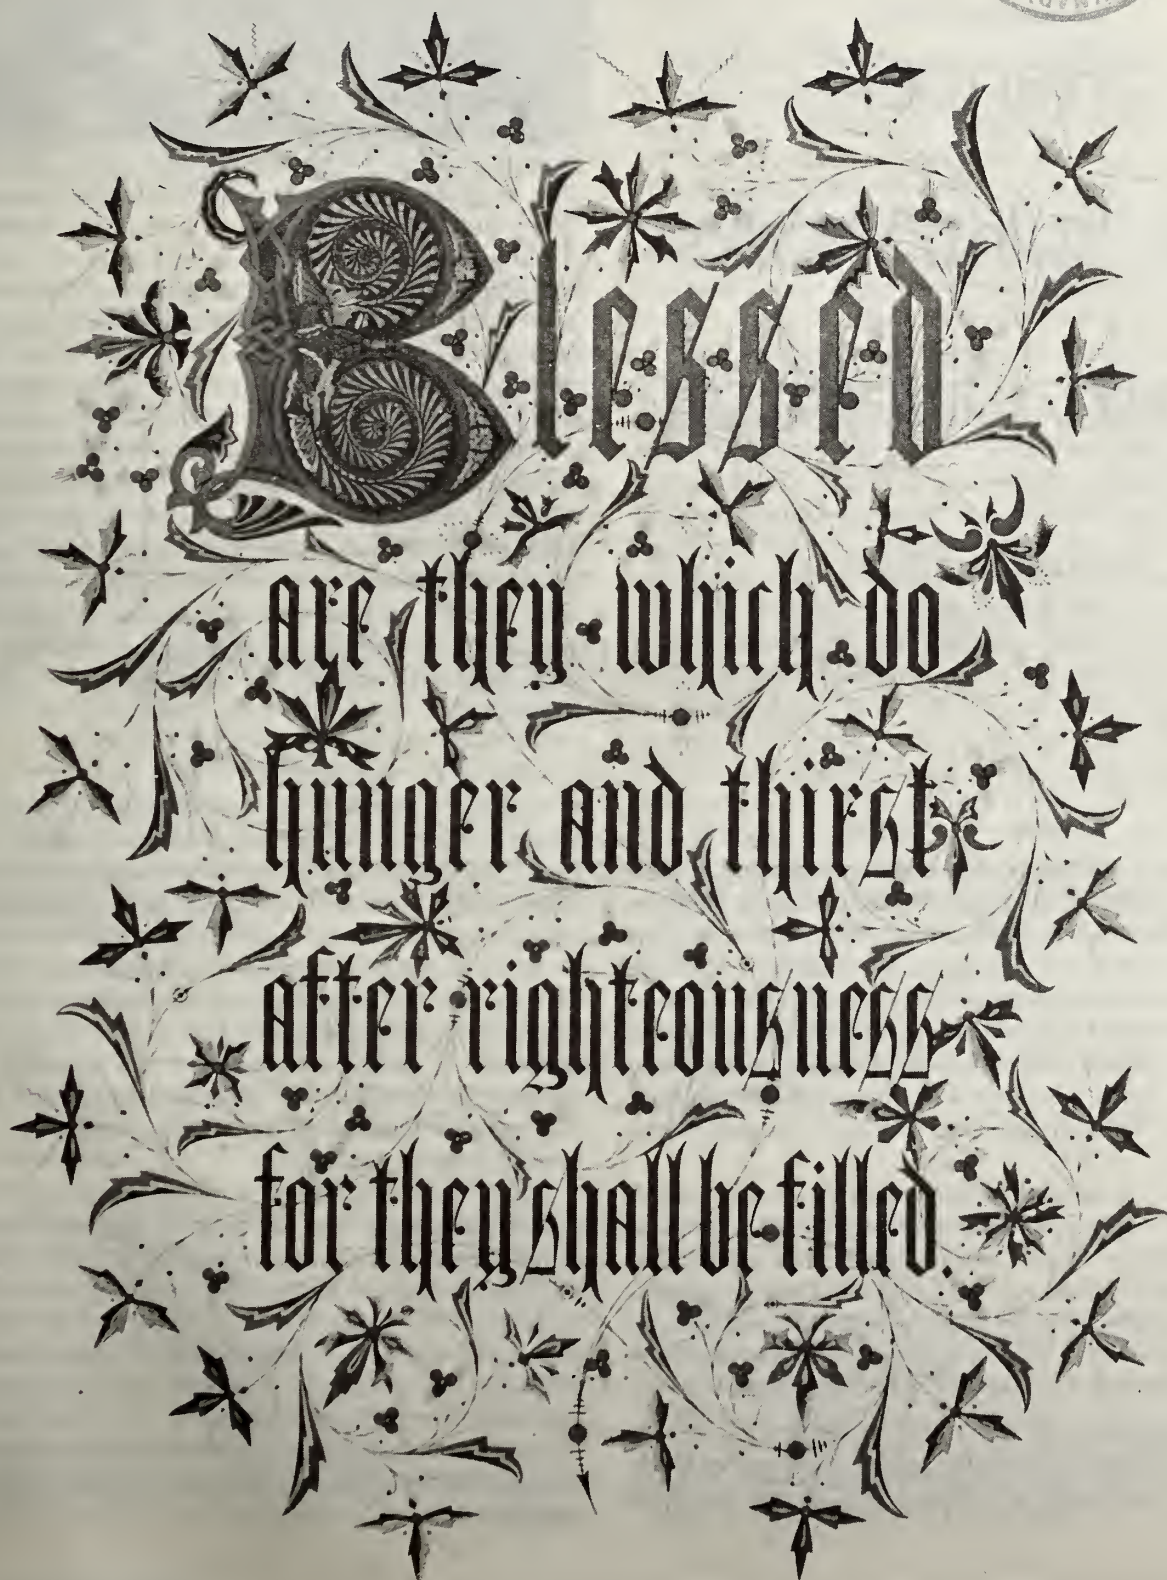 Blessed
are they which do
hunger and thirst
after righteousness
for they shall be filled.